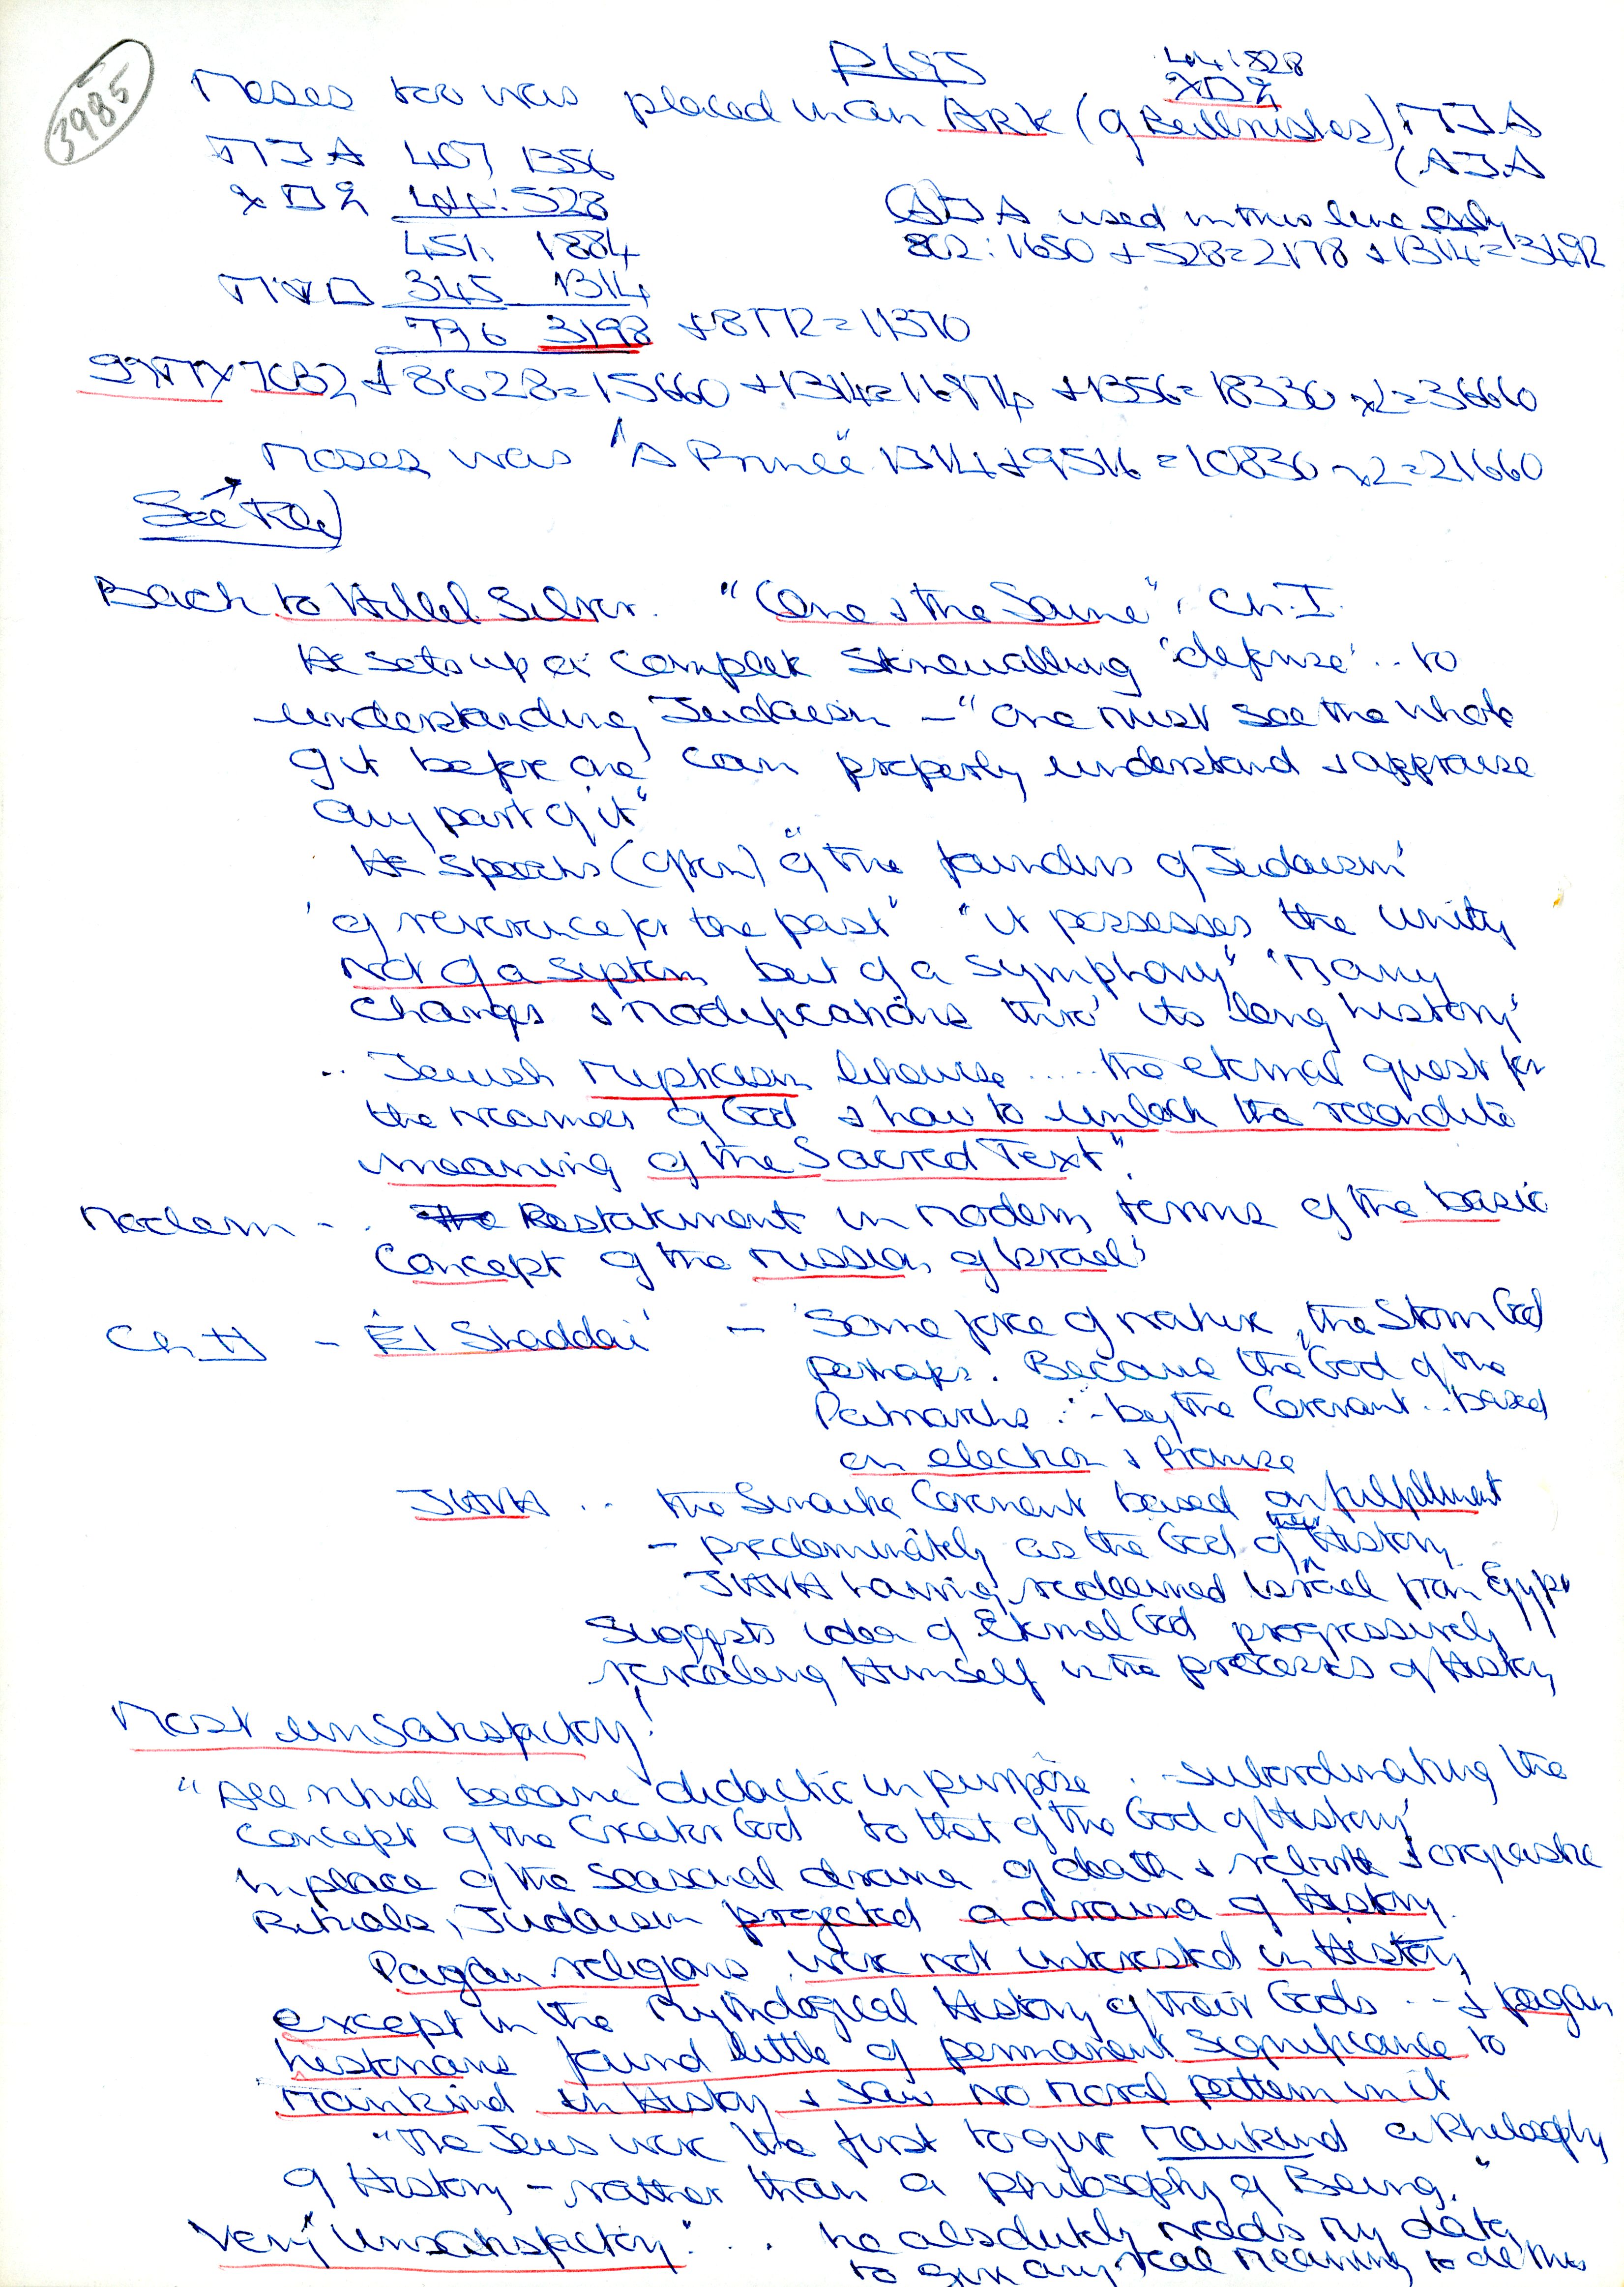 3985
P695
404 : 528
Moses too was placed in an ARK (of Bullrushes)
407 1356
404 : 528
451. 1884
used in this line only
802 : 1650 + 528 = 2178 + 1314 = 3492
345 1314
796 3198 + 8172 = 11370
+ 8628 = 15660 + 1314 = 16974 + 1356 = 18330 x2 = 36660
Moses was "A Prince" 1314 + 9516 = 10830 x2 = 21660
See
Back to Hillel Silver. "One & the Same", Ch. I.
He sets up a complex 'defense' .. to
understanding Judaism — "One must see the whole
of it before one can properly understand & appraise
any part of it"
He speaks (often) "of the founders of Judaism'
'of reverence for the past" "it possesses the unity
not of a system, but of a symphony" "Many
changes & modifications thro' its long history'
.. Jewish mysticism likewise ..... the eternal quest for
the nearness of God & how to unlock the recondite
meaning of the Sacred Text".
Modern - . Restatement in modern terms of the basic
Concept of the mission of Israel'
Ch II - 'El Shaddai' — 'Some force of nature, the Storm God
perhaps. Became the God of the
Patriarchs ..- by the Covenant .. based
on election & Promise
JHVH .. the Sinaitic Covenant based on fulfillment
- predominately as the God of their History
JHVH having redeemed Israel from Egypt
Suggests idea of Eternal God progressively
revealing Himself in the processes of History
Most unsatisfactory!
"All ritual became didactic in purpose . - subordinating the
concept of the Creator God to that of the God of History'
In place of the seasonal drama of death & rebirth & orgiastic
Rituals, Judaism projected a drama of History.
Pagan religions were not interested in History
except in the Mythological History of their Gods .. - & pagan
historians found little of permanent significance to
mankind in History & saw no moral pattern in it
"The Jews were the first to give mankind a Philosophy
of History - rather than a philosophy of Being."
Very "Unsatisfactory" . . he absolutely needs my data
to give any real meaning to all this